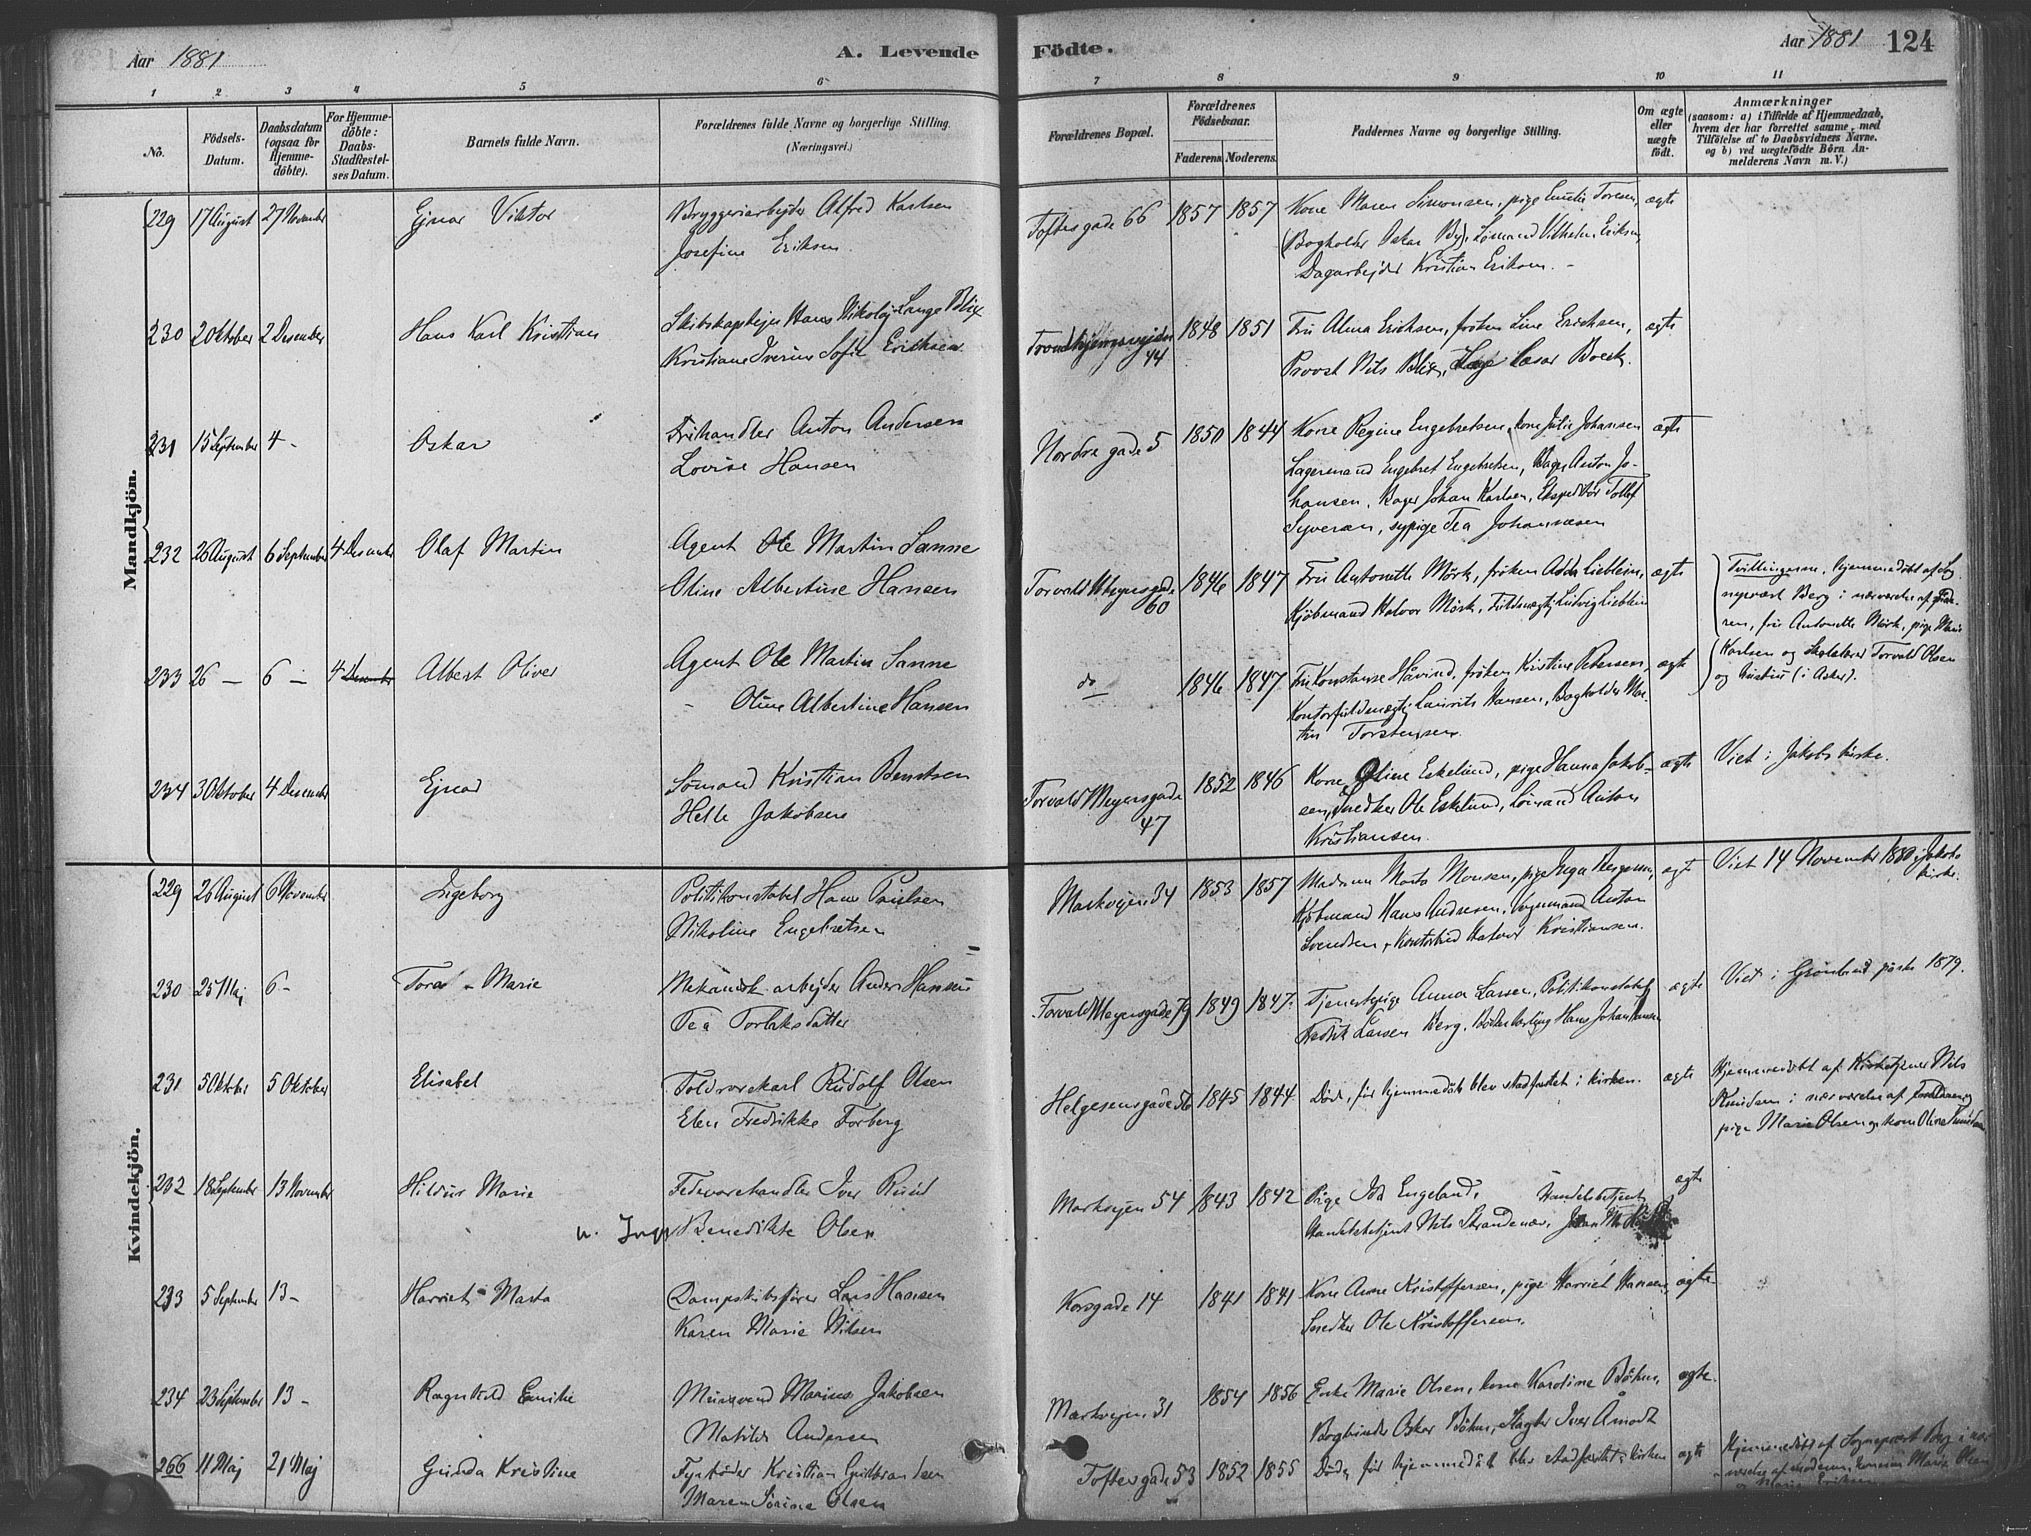 Aar 1881
A. Levende Födte.
Aar 1881 124
1 2 3 4 5 6 7 8 9 10 11
No.
Födsels-Datum.
Daabsdatum (ogsaa for Hjemme-döbte).
For Hjemme-döbte: Daabs-Stadfæstel-ses Datum.
Barnets fulde Navn.
Forældrenes fulde Navne og borgerlige Stilling. (Næringsvei.)
Forældrenes Bopæl.
Forældrenes Födselsaar.
Faderens. Moderens.
Faddernes Navne og borgerlige Stilling.
Om ægte eller uægte födt.
Anmærkninger
(saasom: a) i Tilfælde af Hjemmedaab, hvem der har forrettet samme, med Tilföielse af to Daabsvidners Navne. og b) ved uægtefödte Börn An-melderens Navn m. V.)
Mandkjön.
229 17 August 27 November Ejnar Viktor Bryggeriarbejder Alfred Karlsen Toftesgade 66 1857 1857 Kone Maren Simonsen, pige Emilie Toresen, ægte
Josefine Eriksen (Bogholder Oskar By), Sømand Vilhelm Eriksen,
Dagarbejder Kristian Eriksen. -
230 2 Oktober 2 Desember Hans Karl Kristian Skibskaptejn Hans Nikolaj Lange Blix Trondhjemsvejen 44 1848 1851 Fru Alma Erichsen, frøken Line Erichsen, ægte
Kristiane Iverine Sofie Erichsen Provst Nils Blix, Læge Cæsar Boeck.
231 15 September 4 - Oskar Frihandler Anton Andersen Nordre gade 5 1850 1844 Kone Regine Engebretsen, kone Julie Johansen ægte
Lovise Hansen Lagermand Engebret Engebretsen, Bager Anton Jo-
hansen, Bager Johan Karlsen, Ekspeditør Tollef
Syversen, sypige Tea Johannesen
232 26 August 6 September 4 Desember Olaf Martin Agent Ole Martin Sanne Torvald Meyersgade 60 1846 1847 Fru Antonette Mørk, frøken Adda Lieblein, ægte Tvillingerne, hjemmedøbt af Sog-
Oline Albertine Hansen Kjøbmand Halvor Mørk, Fuldmægtig Ludvig Lieblein nepræst Berg i nærværelse af Fade-
ren, fru Antonette Mørk, pige Marie
233 26 - 6 - 4 Desember Albert Oliver Agent Ole Martin Sanne do 1846 1847 Fru Konstanse Håvind, frøken Kristine Petersen, ægte Karlsen og Skolelærer Torvald Olsen
- Oline Albertine Hansen Kontorfuldmægtig Laurits Hansen, Bogholder Mar- og hustru (i Asker).
tin Torstensen
234 3 Oktober 4 Desember Ejnar Sømand Kristian Berntsen Torvald Meyersgade 47 1852 1846 Kone Oline Eskelund, pige Hanna Jakob- ægte Viet i Jakobs kirke.
Helle Jakobsen sen, Snedker Ole Eskelund, Sømand Anton
Kristiansen.
Kvindekjön.
229 26 August 6 November Ingeborg Politikonstabel Hans Paulsen Markvejen 34 1853 1857 Madam Marta Monsen, pige Inga Jørgensen, ægte Viet 14 November 1880 i Jakobs kirke.
Nikoline Engebretsen Kjøbmand Hans Andresen, Vognmand Anton
Svendsen, Kontorbud Halvor Kristiansen.
230 25 Maj 6 - Tora Marie Mekanisk arbejder Anders Hansen Torvald Meyersgade 79 1849 1847 Tjenestepige Anna Larsen, Politikonstabel ægte Viet i Grønland påske 1879.
Tea Torlaksdatter Fredrik Larsen Berg, Bødkerlærling Hans Johan Hansen
231 5 Oktober 5 Oktober Elisabet Toldrorskarl Rudolf Olsen Helgesensgade 56 1845 1844 Død, før hjemmedåb blev stadfæstet i kirken. ægte Hjemmedøbt af Kirketjener Nils
Elen Fredrikke Forberg Knudsen i nærværelse af Forældrene og
pige Marie Olsen og kone Oline Knudsen
232 18 September 13 November Hildur Marie Fedevarehandler Iver Ruud Markvejen 54 1843 1842 Pige Ida Engeland, Handelsbetjent ægte
Benedikte Olsen Handelsbetjent Nils Strandenær, Johan
233 5 September 13 - Harriet Marta Dampskibsfører Lars Hansen Korsgade 14 1841 1841 Kone Anne Kristoffersen, pige Harriet Hansen, ægte
Karen Marie Nilsen Snedker Ole Kristoffersen.
234 23 September 13 - Ragnhild Emilie Mursvend Marius Jakobsen Markvejen 31 1854 1856 Enke Marie Olsen, kone Karoline Bøhn, ægte.
Matilde Andersen Bogbinder Oskar Bøhn, Slagter Iver Åmodt
266 11 Maj 21 Maj Gunda Kristine Fyrbøder Kristian Gulbrandsen Toftesgade 53 1852 1855 Død, før hjemmedåb blev stadfæstet i kirken ægte Hjemmedøbt af Sognepræst Berg i nær-
Maren Sørine Olsen værelse af moderen, konerne Marie Olsen
og Marie Eriksen